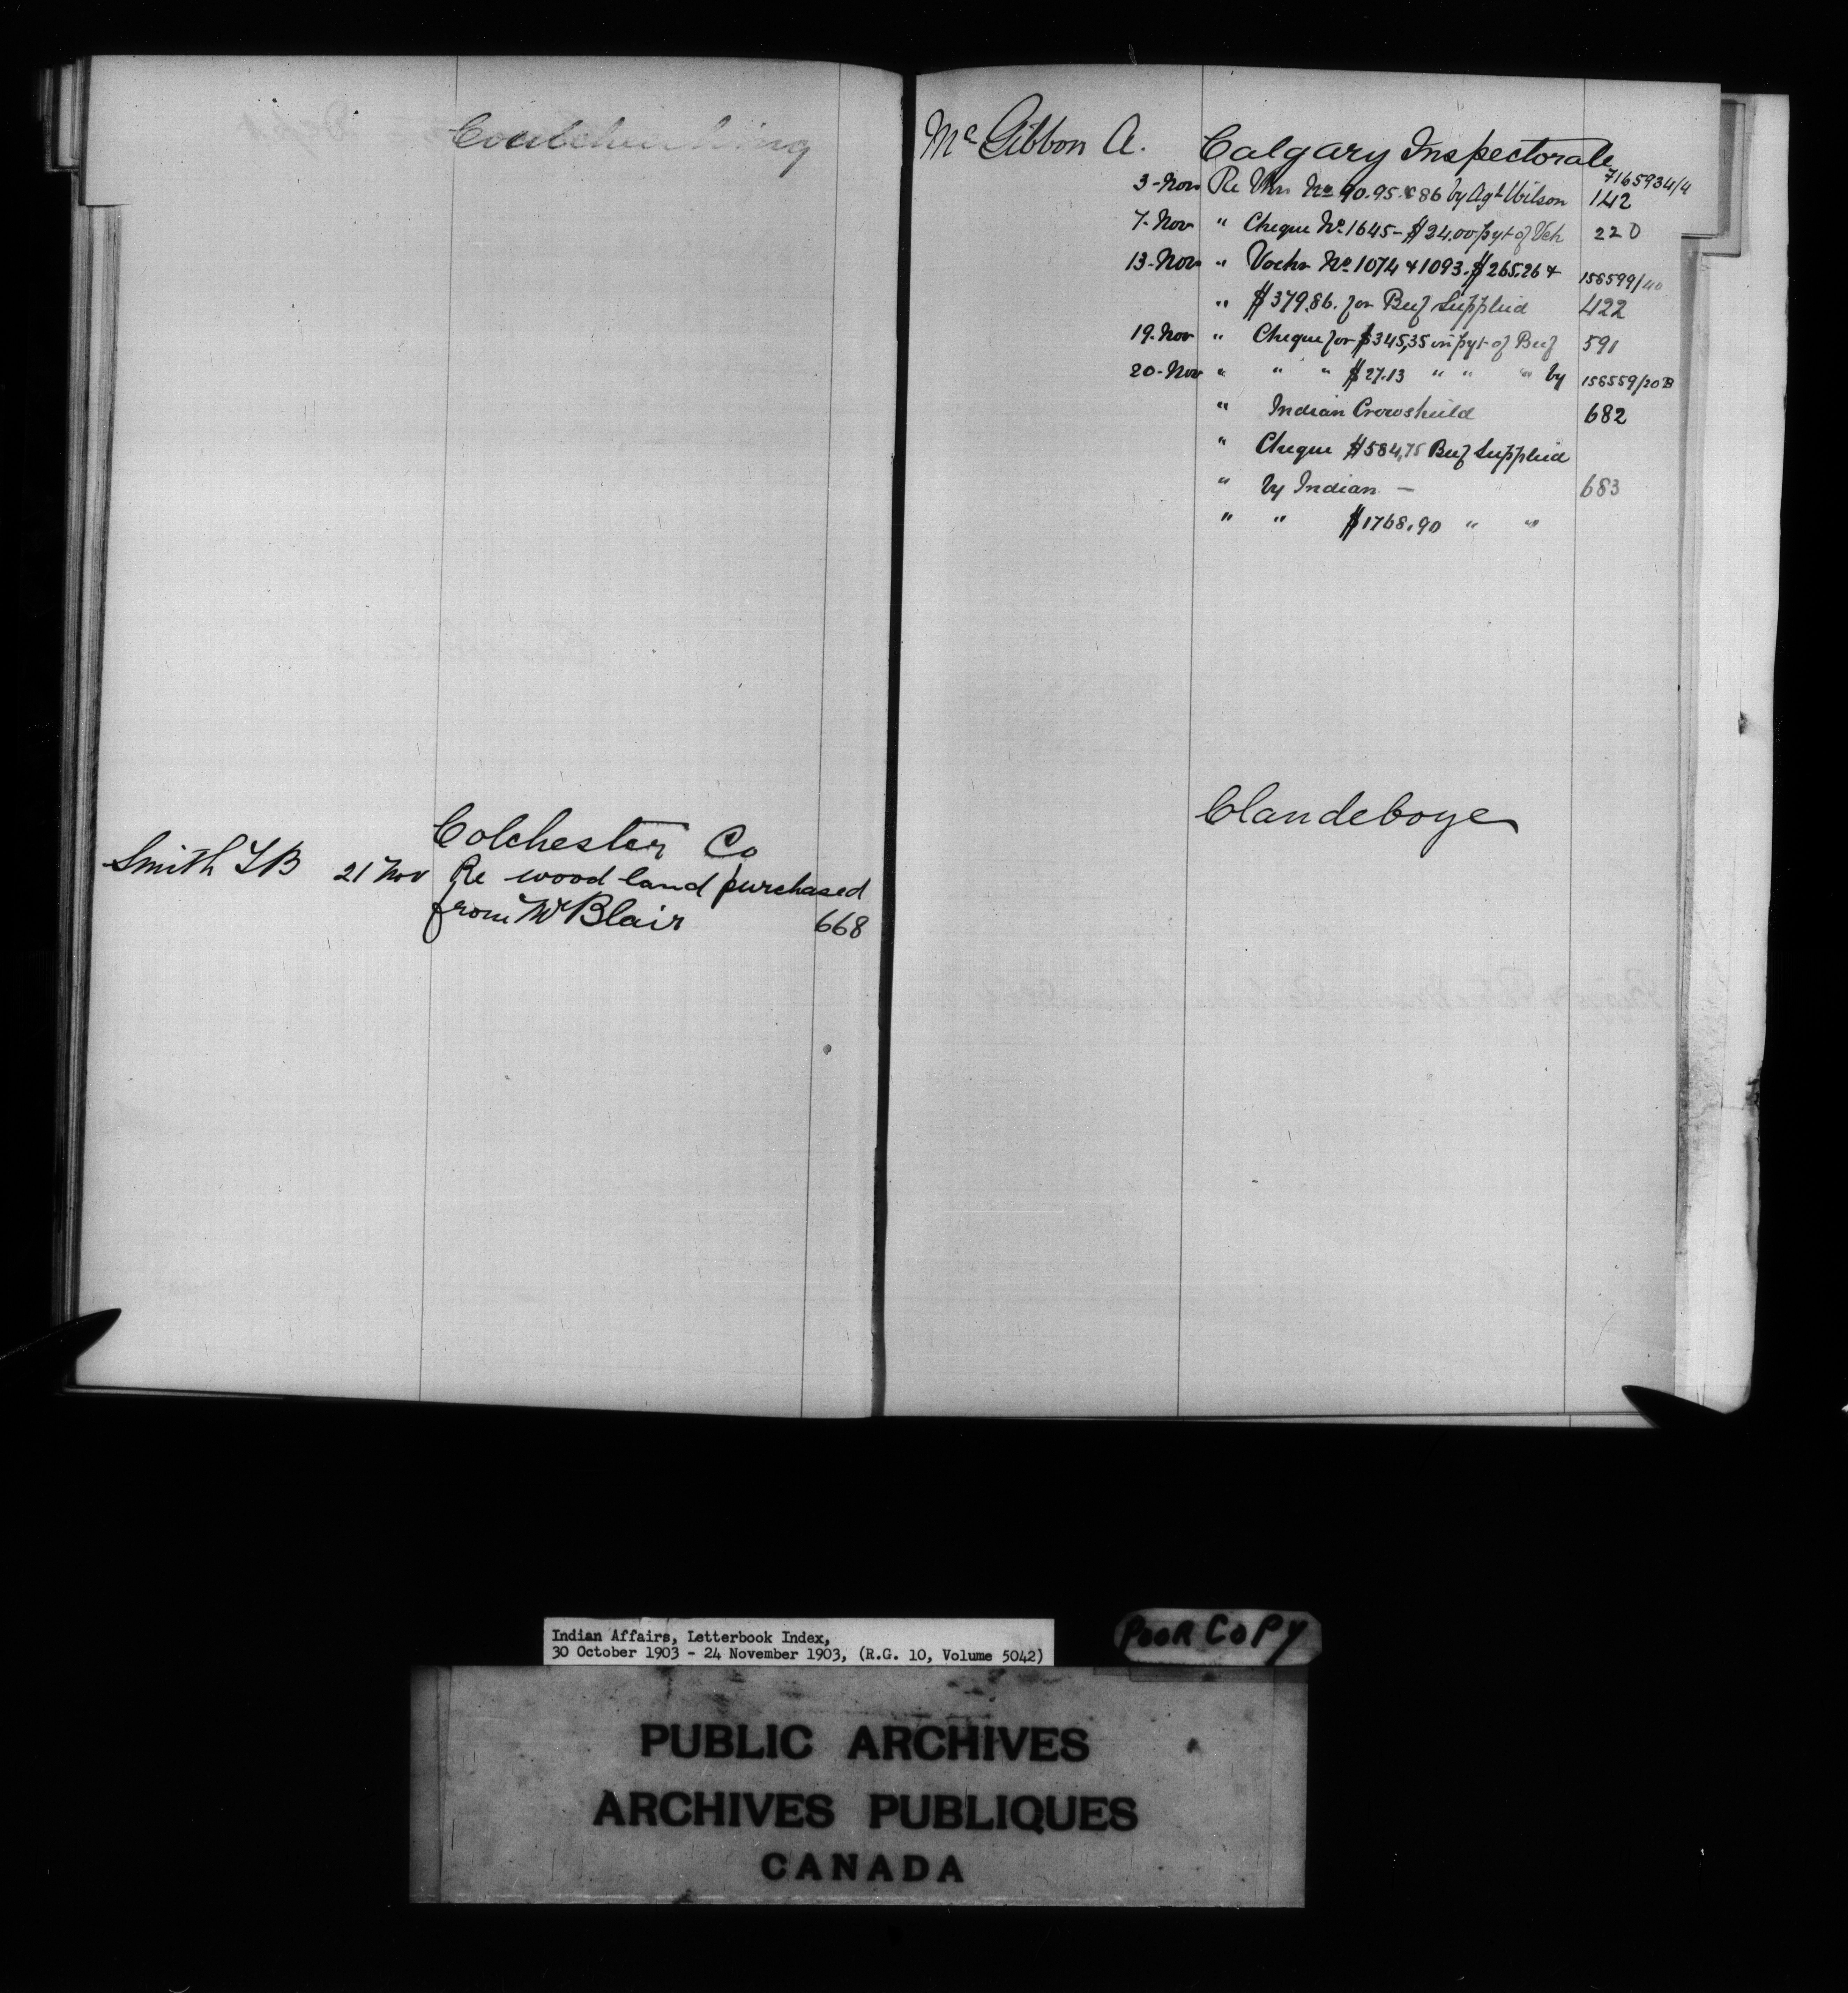 Couchiching
Colchester Co
Smith T B 21 Nov Re wood land purchased
from Mr Blair 668
Mc Gibbon A. Calgary Inspectorate
7165934/4
3-Nov Re Vhrs No 90.95.& 86 by Agt Wilson 142
7-Nov " Cheque No. 1645-$24.00 pyt of Veh 220
13-Nov " Vochr No 1074 & 1093-$265.26 & 156599/40
" $379.86. for Beef Supplied 422
19-Nov " Cheque for $345,35 in pyt of Beef 591
20-Nov " " " $27.13 " " " by 156559/20B
" Indian Crowshield 682
" Cheque $584,75 Beef Supplied
" by Indian - 683
" " $1768.90 " "
Clandeboye
Indian Affairs, Letterbook Index,
30 October 1903 - 24 November 1903, (R.G. 10, Volume 5042)
POOR COPY
PUBLIC ARCHIVES
ARCHIVES PUBLIQUES
CANADA